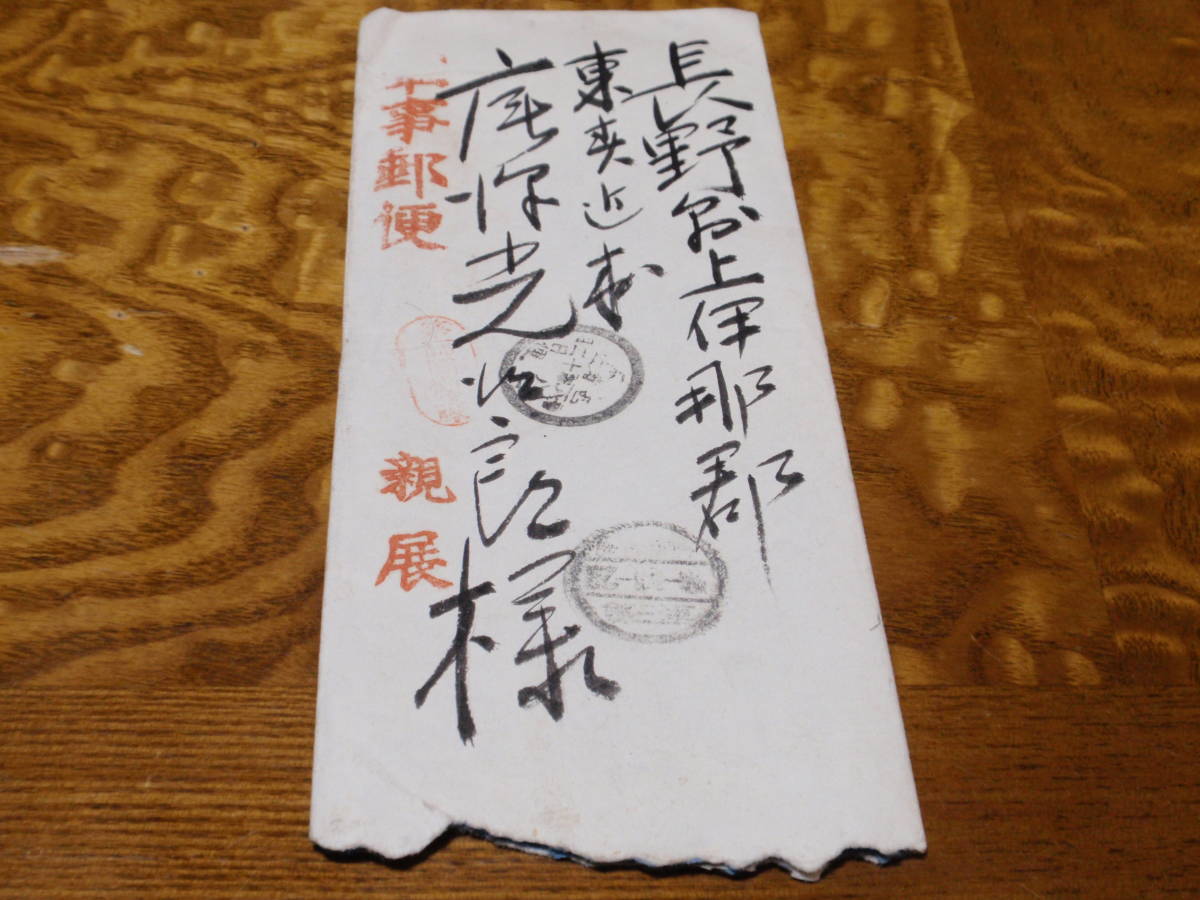 長野縣上伊那郡
東春近村
唐澤光治良様
軍事郵便
親展